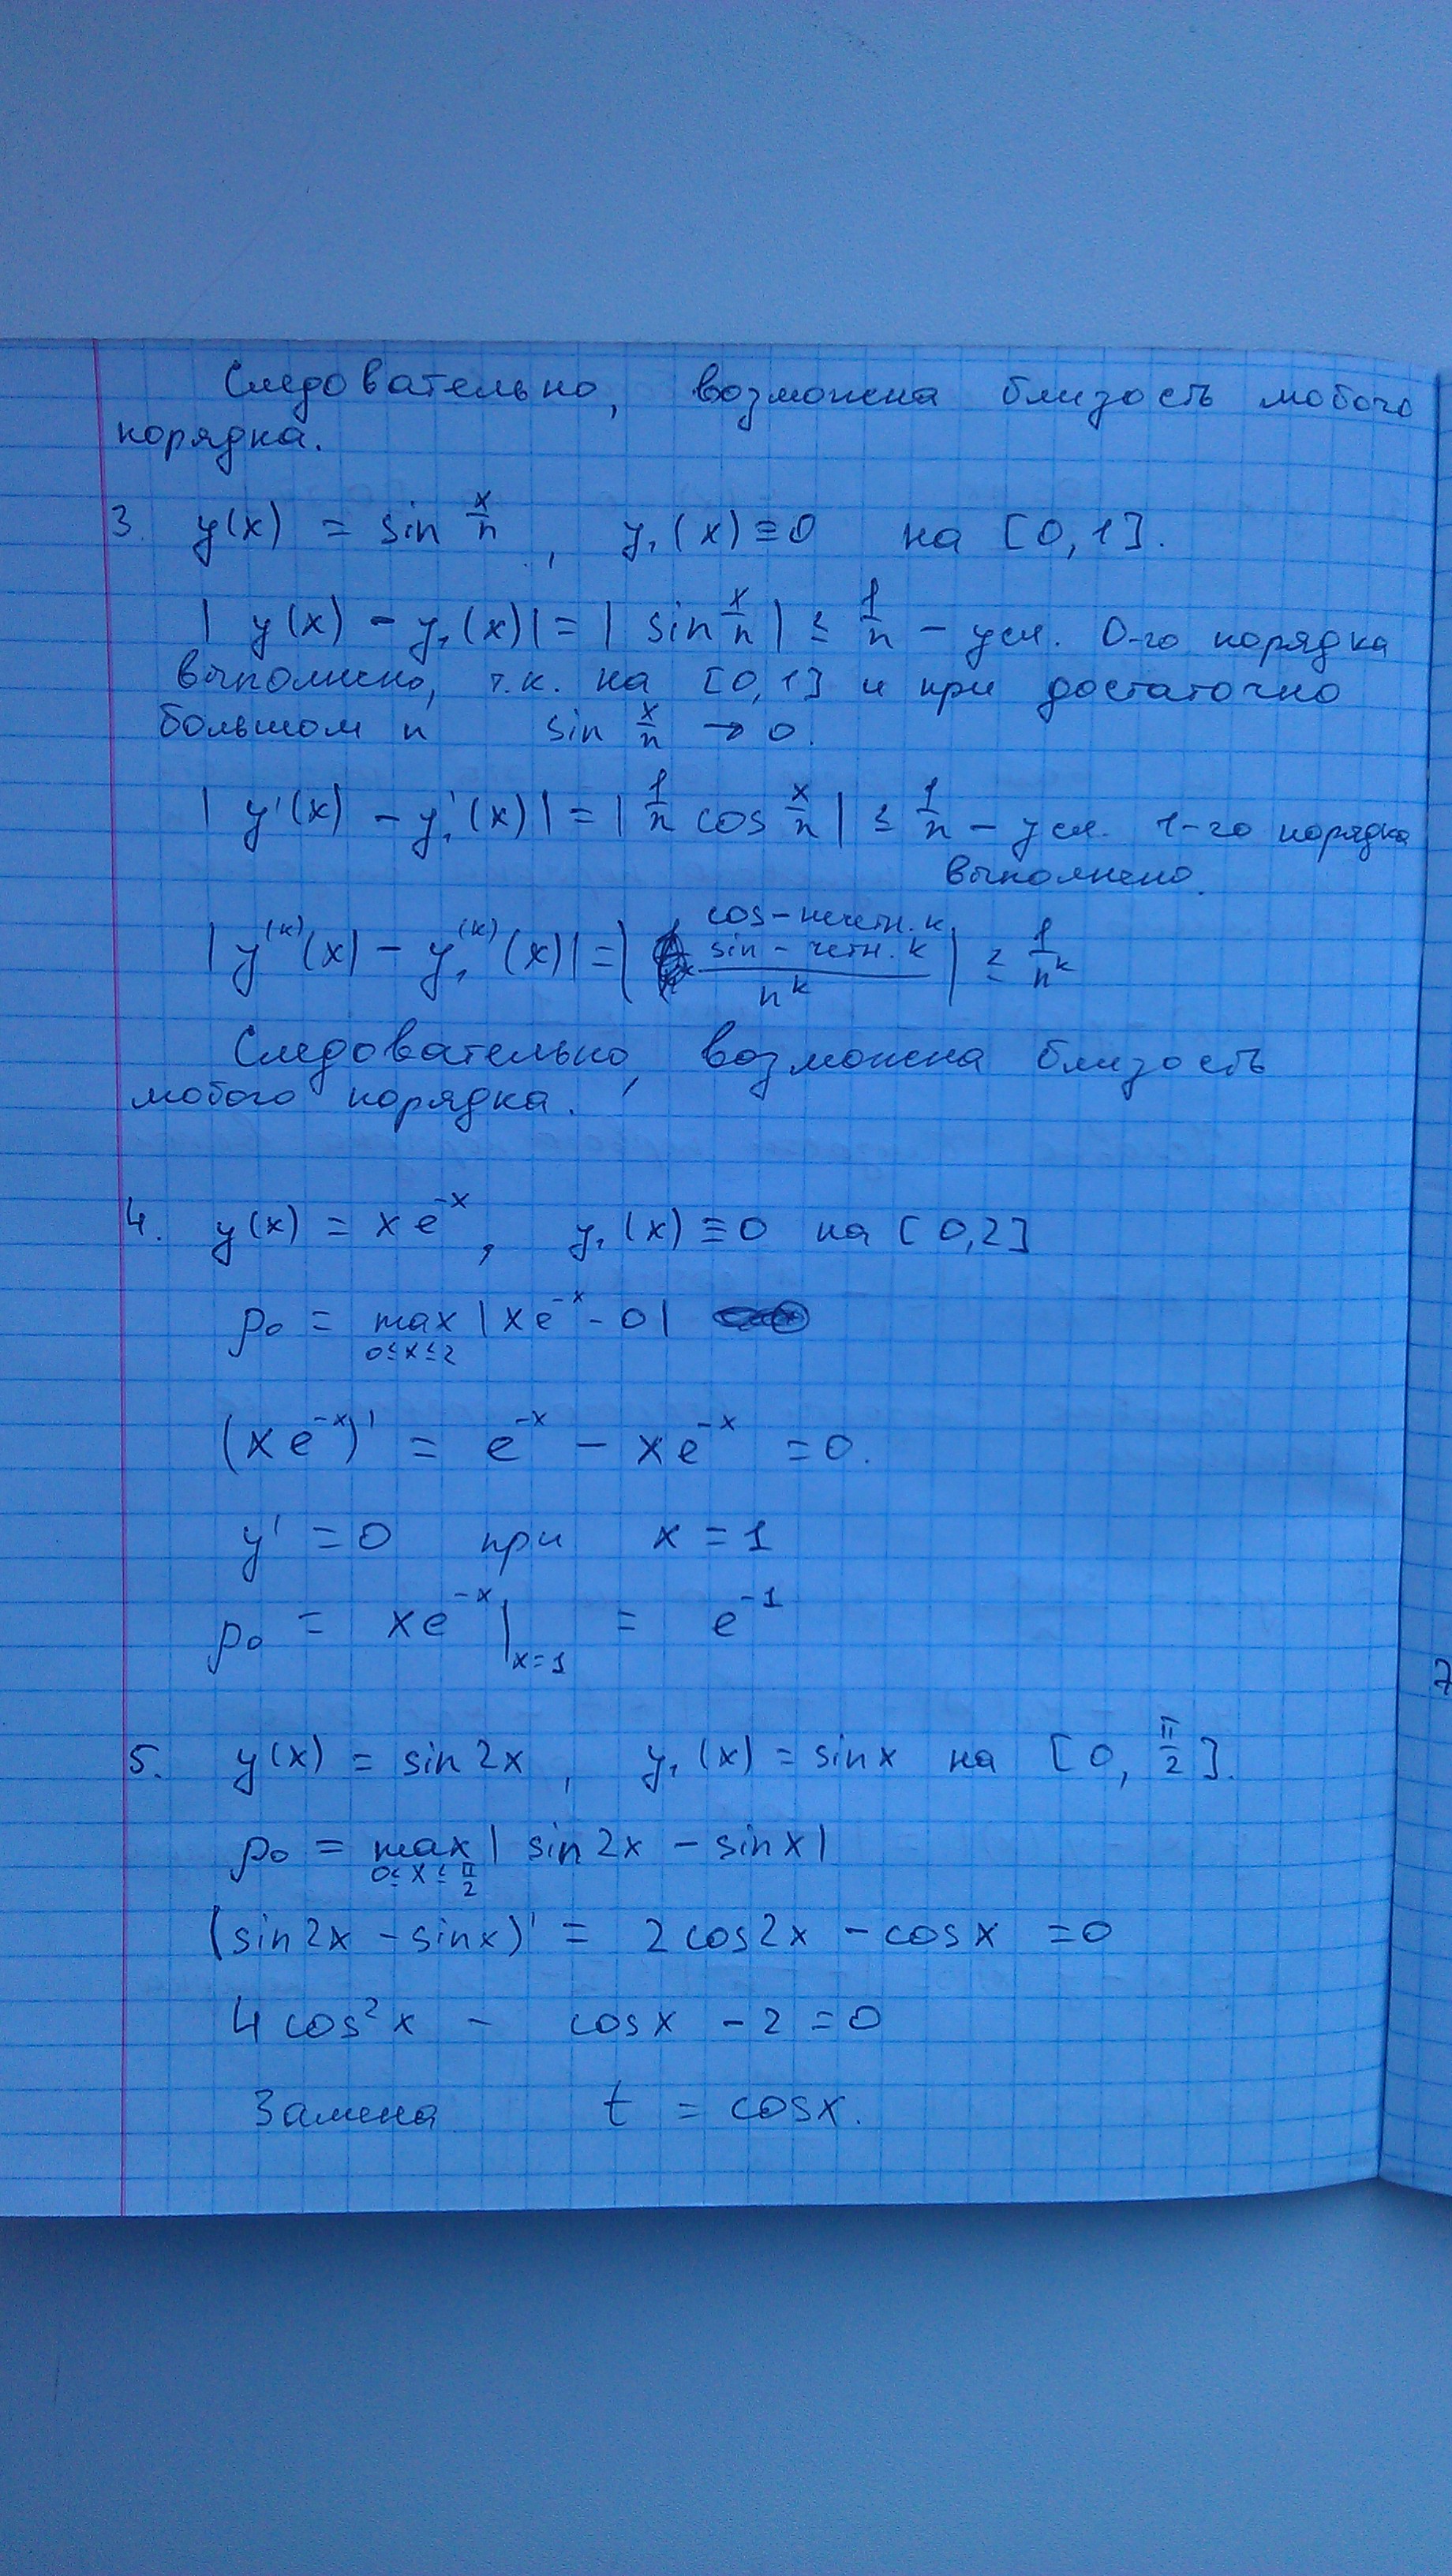 Следовательно, возможна близость любого
порядка.
3. y(x) = sin x/n , y₁(x) ≡ 0 на [0,1].
| y(x) - y₁(x)| = | sin x/n | ≤ 1/n - усл. 0-го порядка
выполнено, т.к. на [0,1] и при достаточно
большом n sin x/n → 0.
| y'(x) - y₁'(x)| = | 1/n cos x/n | ≤ 1/n - усл. 1-го порядка
выполнено.
| y⁽ᵏ⁾(x) - y₁⁽ᵏ⁾(x)| = | (cos - нечетн. k, sin - четн. k)/nᵏ | ≥ 1/nᵏ
Следовательно, возможна близость
любого порядка.
4. y(x) = xe⁻ˣ, y₁(x) ≡ 0 на [0,2]
ρ₀ = max |xe⁻ˣ - 0|
0≤x≤2
(xe⁻ˣ)' = e⁻ˣ - xe⁻ˣ = 0.
y' = 0 при x = 1
ρ₀ = xe⁻ˣ|ₓ₌₁ = e⁻¹
5. y(x) = sin2x , y₁(x) = sinx на [0, π/2].
ρ₀ = max | sin2x - sinx|
0≤x≤π/2
(sin2x - sinx)' = 2cos2x - cosx = 0
4cos²x - cosx - 2 = 0
Замена t = cosx.
7